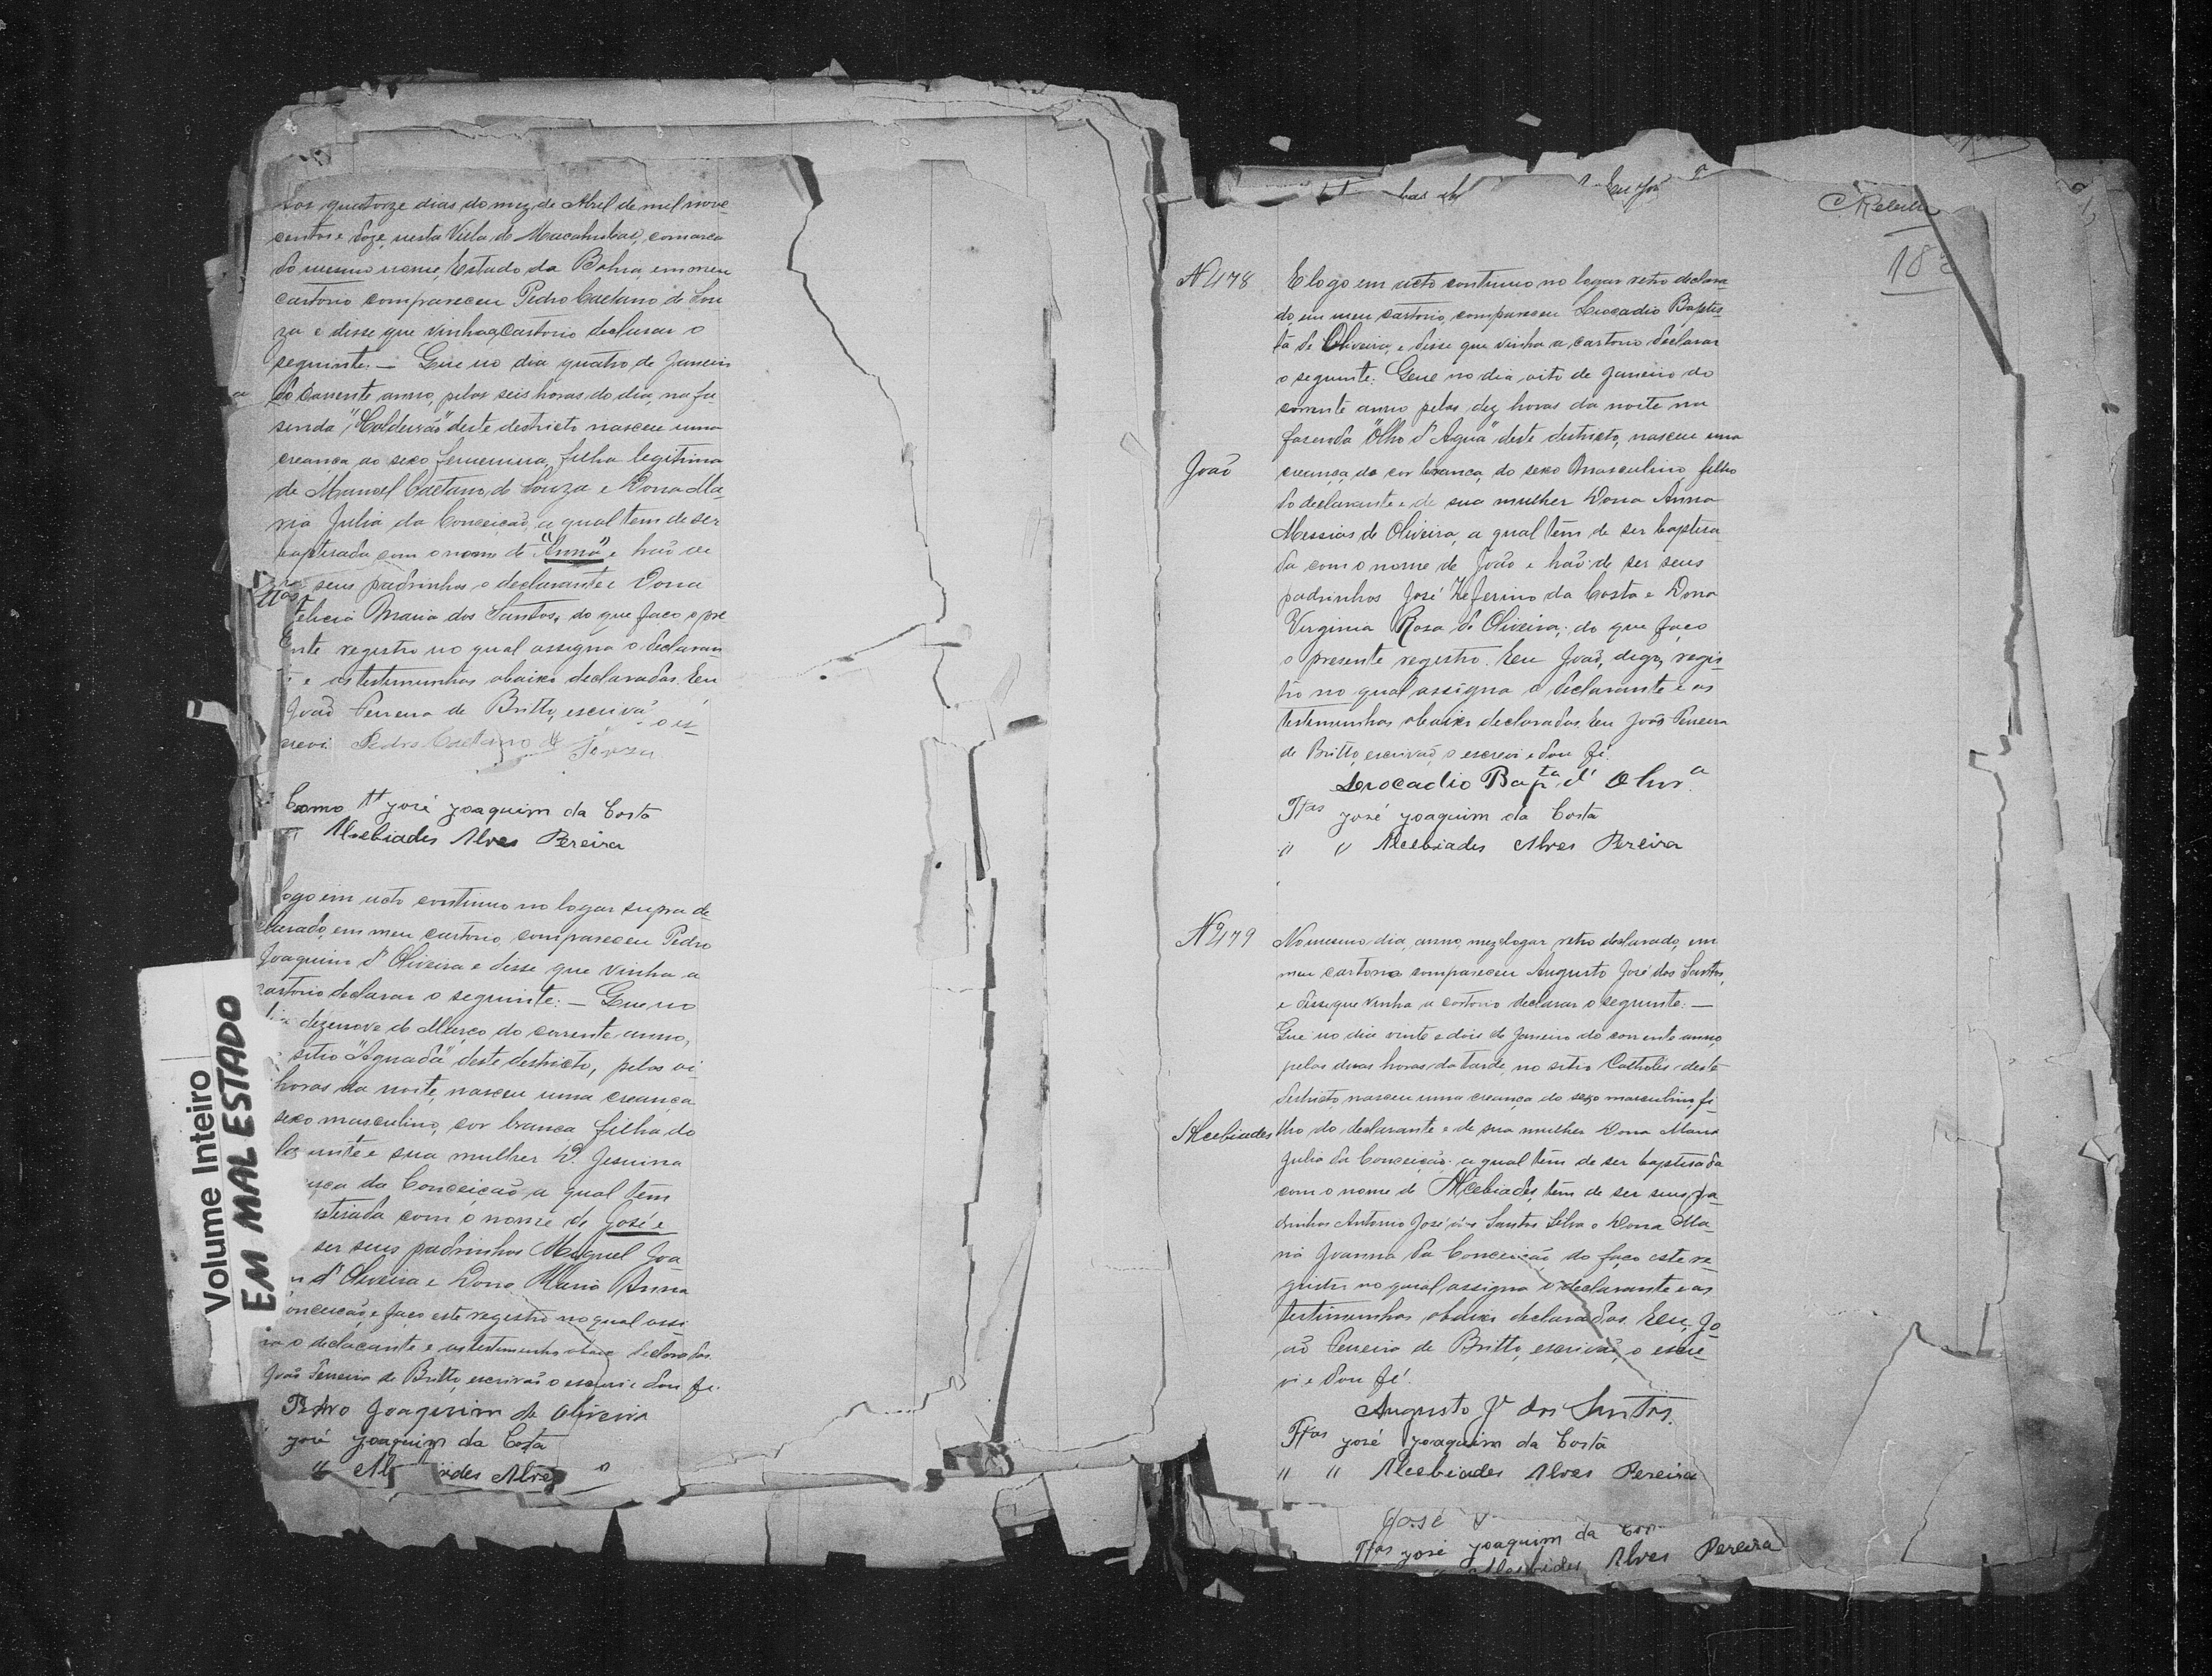 Aos quatorze dias do mez de Abril de mil nove
centos e doze, nesta Villa de Macahubas, comarca
do mesmo nome, Estado da Bahia, em meu
cartorio compareceu Pedro Caetano de Sou
za e disse que vinha a Cartorio declarar o
seguinte: — Que no dia quatro de Janeiro
do corrente anno, pelas seis horas do dia, na fa-
senda "Caldeirão" deste destricto nasceu uma
creança do sexo femenino, filha legitima
de Manoel Caetano de Souza e Dona Ma
ria Julia da Conceição, a qual tem de ser
baptisada com o nome de "Anna" e hão de
seus padrinhos o declarante e Dona
Felicia Maria dos Santos, do que faço o pre
ente registro no qual assigna o declaran
e as testimunhas abaixo declaradas. Eu
João Pereira de Britto, escrivão o es-
crevi Pedro Caetano de Souza
Como tta José Joaquim da Costa
" Alcebiades Alves Pereira
logo em acto continuo no logar supra de
clarado, em meu cartorio, compareceu Pedro
Joaquim d'Oliveira e disse que vinha a
cartorio declarar o seguinte: — Que no
dia dezenove de Março do corrente anno,
sitio "Aguada" deste destricto, pelas oi-
horas da noite, nasceu uma creança
sexo masculino, cor branca filha do
ante e sua mulher D. Jesuina
da Conceição a qual têm
com o nome de José e
ser seus padrinhos Miguel Joa
d'Oliveira e Dona Maria Anna
onceição, e faço este registro no qual assi
o declarante e as testemunhas abaixo declaradas.
João Pereira de Britto, escrivão o escrevi e dou fé.
Pedro Joaquim de Oliveira
José Joaquim da Costa
" Al ades Alves
18
N 478
E logo em acto continuo no logar retro declara
do, em meu cartorio, compareceu Leocadio Baptis
ta de Oliveira, e disse que vinha a cartorio declarar
o seguinte: Que no dia oito de Janeiro do
corrente anno pelas dez horas da noite na
fazenda "Olho d'Agua" deste destricto, nasceu uma
João
creança da cor branca, do sexo Masculino filho
do declarante e de sua mulher Dona Anna
Messias de Oliveira, a qual têm de ser baptisa
da com o nome de João e hão de ser seus
padrinhos José Zeferino da Costa e Dona
Virginia Rosa de Oliveira, do que faço
o presente registro. Eu João, digo, regis-
tro no qual assigna o declarante e as
testimunhas abaixo declaradas. Eu João Pereira
de Britto, escrivão, o escrevi e dou fé.
Leocadio Bapta d' Olivra
Ttas José Joaquim da Costa
" " Alcebiades Alves Pereira
Nº 479
No mesmo dia, anno, mez e logar retro declarado, em
meu cartorio compareceu Augusto José dos Santos,
e disse que vinha a cartorio declarar o seguinte: —
Que no dia vinte e dois de Janeiro do corrente anno,
pelas duas horas da tarde, no sitio Catholés deste
destricto, nasceu uma creança do sexo masculino, fi-
Alcebiades
lho do declarante e de sua mulher Dona Maria
Julia da Conceição, a qual têm de ser baptisada
com o nome de Alcebiades, têm de ser seus pa-
drinhos Antonio José dos Santos Silva e Dona Ma-
ria Joanna da Conceição, do faço este re-
gistro no qual assigna o declarante e as
testimunhas abaixo declaradas. Eu, Jo
ão Pereira de Britto, escrivão, o escre-
vi e dou fé.
Augusto Jé dos Santos.
Ttas José Joaquim da Costa
" " Alcebiades Alves Pereira
José
Ttas José Joaquim da
Alcebiades Alves Pereira
Volume Inteiro
EM MAL ESTADO